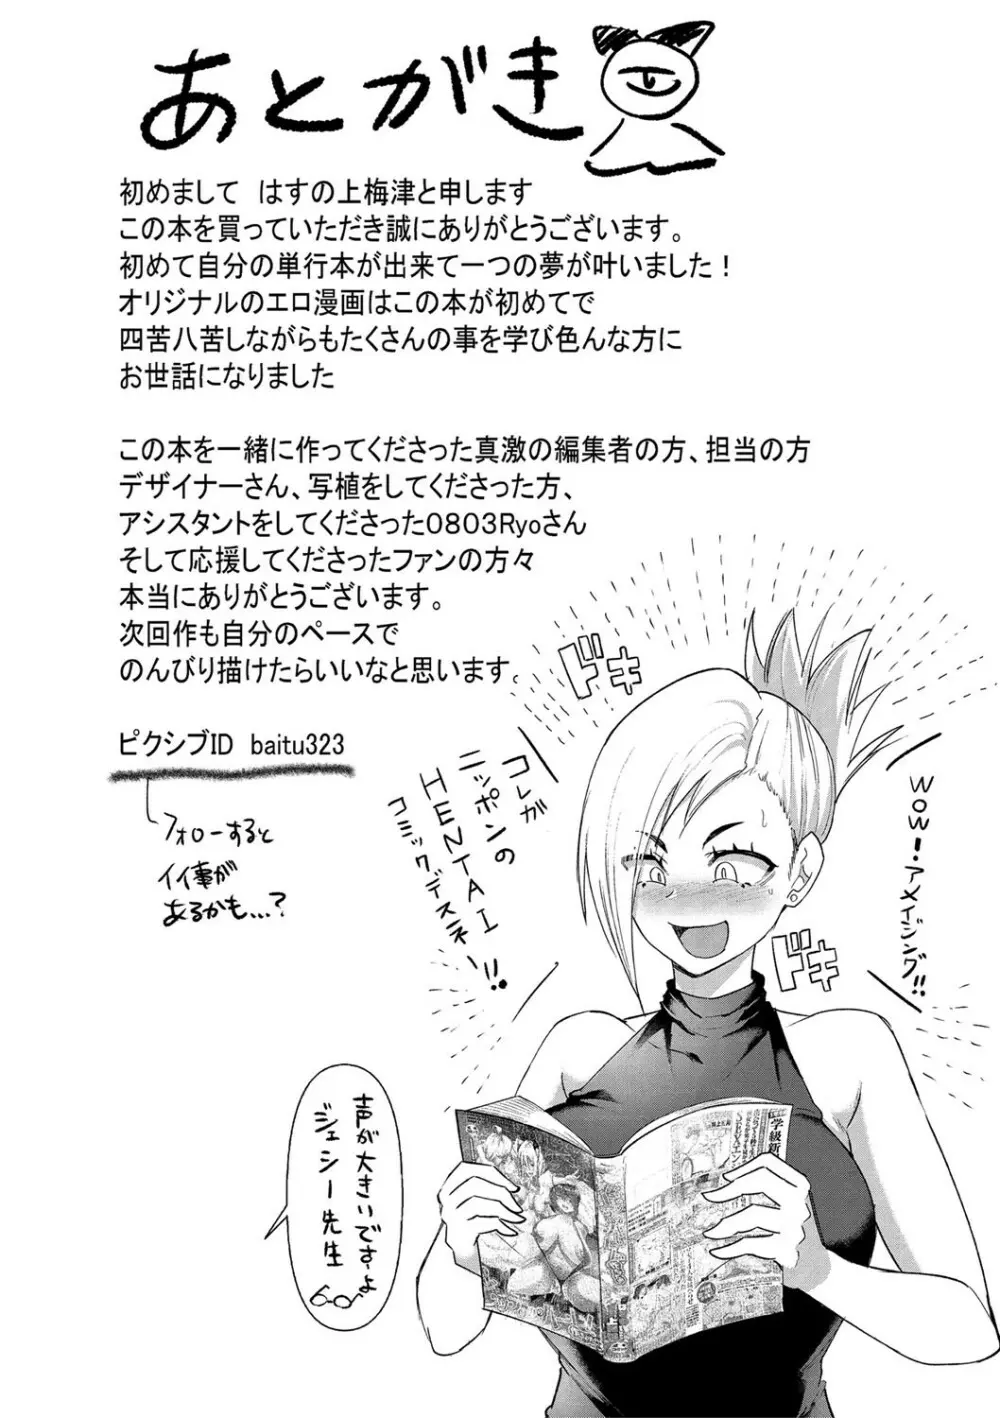 あとがき
初めまして　はすの上梅津と申します
この本を買っていただき誠にありがとうございます。
初めて自分の単行本が出来て一つの夢が叶いました！
オリジナルのエロ漫画はこの本が初めてで
四苦八苦しながらもたくさんの事を学び色んな方に
お世話になりました
この本を一緒に作ってくださった真激の編集者の方、担当の方
デザイナーさん、写植をしてくださった方、
アシスタントをしてくださった0803Ryoさん
そして応援してくださったファンの方々
本当にありがとうございます。
次回作も自分のペースで
のんびり描けたらいいなと思います。
ピクシブID　baitu323
フォローすると
イイ事が
あるかも…?
ドキ
WOW！・アメイジング!!
コレガ
ニッポンの
HENTAI
コミックデスネー!!
ドキ
声が大きいですよ
ジェシー先生
学級新